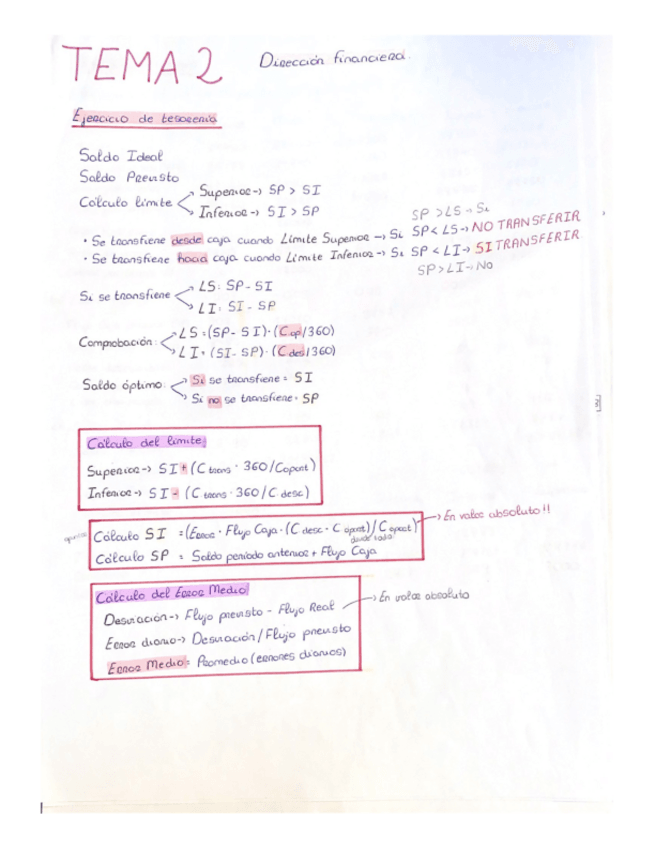 TEMA 2 Dirección financiera.
Ejercicio de tesorería
Saldo Ideal
Saldo Previsto
Cálculo límite
Superior → SP > SI
Inferior → SI > SP
SP > LS → Si
· Se transfiere desde caja cuando Límite Superior → Si SP < LS → NO TRANSFERIR
· Se transfiere hacia caja cuando Límite Inferior → Si SP < LI → SI TRANSFERIR
SP > LI → No
Si se transfiere
LS: SP - SI
LI: SI - SP
Comprobación:
LS = (SP - SI) · (C op/360)
LI = (SI - SP) · (C des/360)
Saldo óptimo:
Si se transfiere = SI
Si no se transfiere = SP
Cálculo del límite
Superior → SI + (C trans · 360/C oport)
Inferior → SI - (C trans · 360/C desc)
Cálculo SI = (Error · Flujo Caja · (C desc - C oport)/C oport) → En valor absoluto!!
Cálculo SP = Saldo período anterior + Flujo Caja
Cálculo del Error Medio
Desviación → Flujo previsto - Flujo Real → En valor absoluto
Error diario → Desviación/Flujo previsto
Error Medio = Promedio (errores diarios)